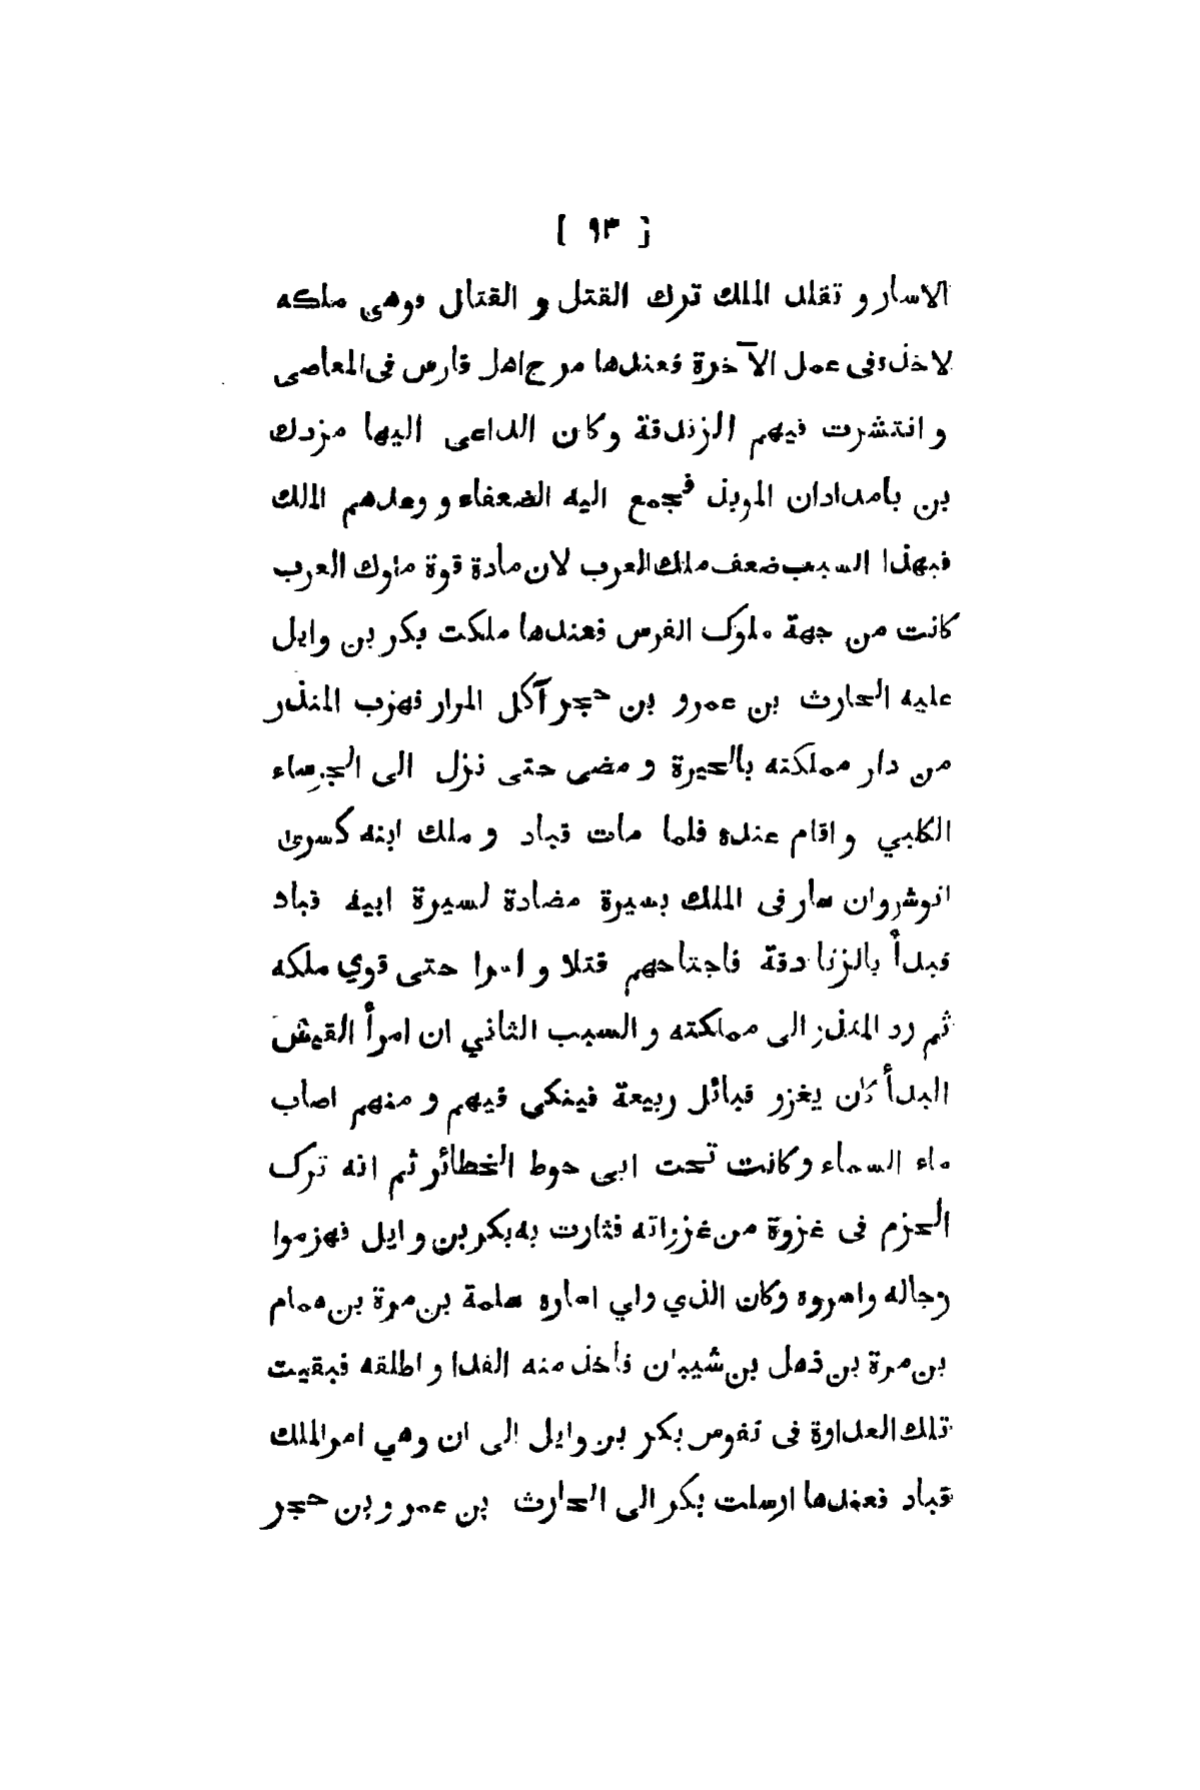 [ ٩٣ ]
الاسار و تقلد الملك ترك القتل و القتال فوهى ملكه
لاخذه فى عمل الآخرة فعندها مرج اهل فارس فى المعاصى
و انتشرت فيهم الزندقة وكان الداعى اليها مزدك
بن بامدادان الموبذ فجمع اليه الضعفاء و وعدهم الملك
فبهذا السبب ضعف ملك العرب لان مادة قوة ملوك العرب
كانت من جهة ملوك الفرس فعندها ملكت بكر بن وايل
عليه الحارث بن عمرو بن حجر آكل المرار فهزب المنذر
من دار مملكته بالحيرة و مضى حتى نزل الى الجرساء
الكلبي و اقام عنده فلما مات قباد و ملك ابنه كسرى
انوشروان سار فى الملك بسيرة مضادة لسيرة ابيه قباد
فبدأ بالزنادقة فاجتاحهم قتلا و اسرا حتى قوي ملكه
ثم رد المنذر الى مملكته و السبب الثاني ان امرأ القيش
البدأ كان يغزو قبائل ربيعة فينكى فيهم و منهم اصاب
ماء السماء وكانت تحت ابى حوط الخطائر ثم انه ترك
الحزم فى غزوة من غزراته فثارت به بكر بن و ايل فهزموا
رجاله واسروه وكان الذي ولي اساره سلمة بن مرة بن همام
بن مرة بن ذهل بن شيبان فأخذ منه الفدا و اطلقه فبقيت
تلك العداوة فى نفوس بكر بن وايل الى ان وهي امر الملك
قباد فعندها ارسلت بكر الى الحارث بن عمرو بن حجر